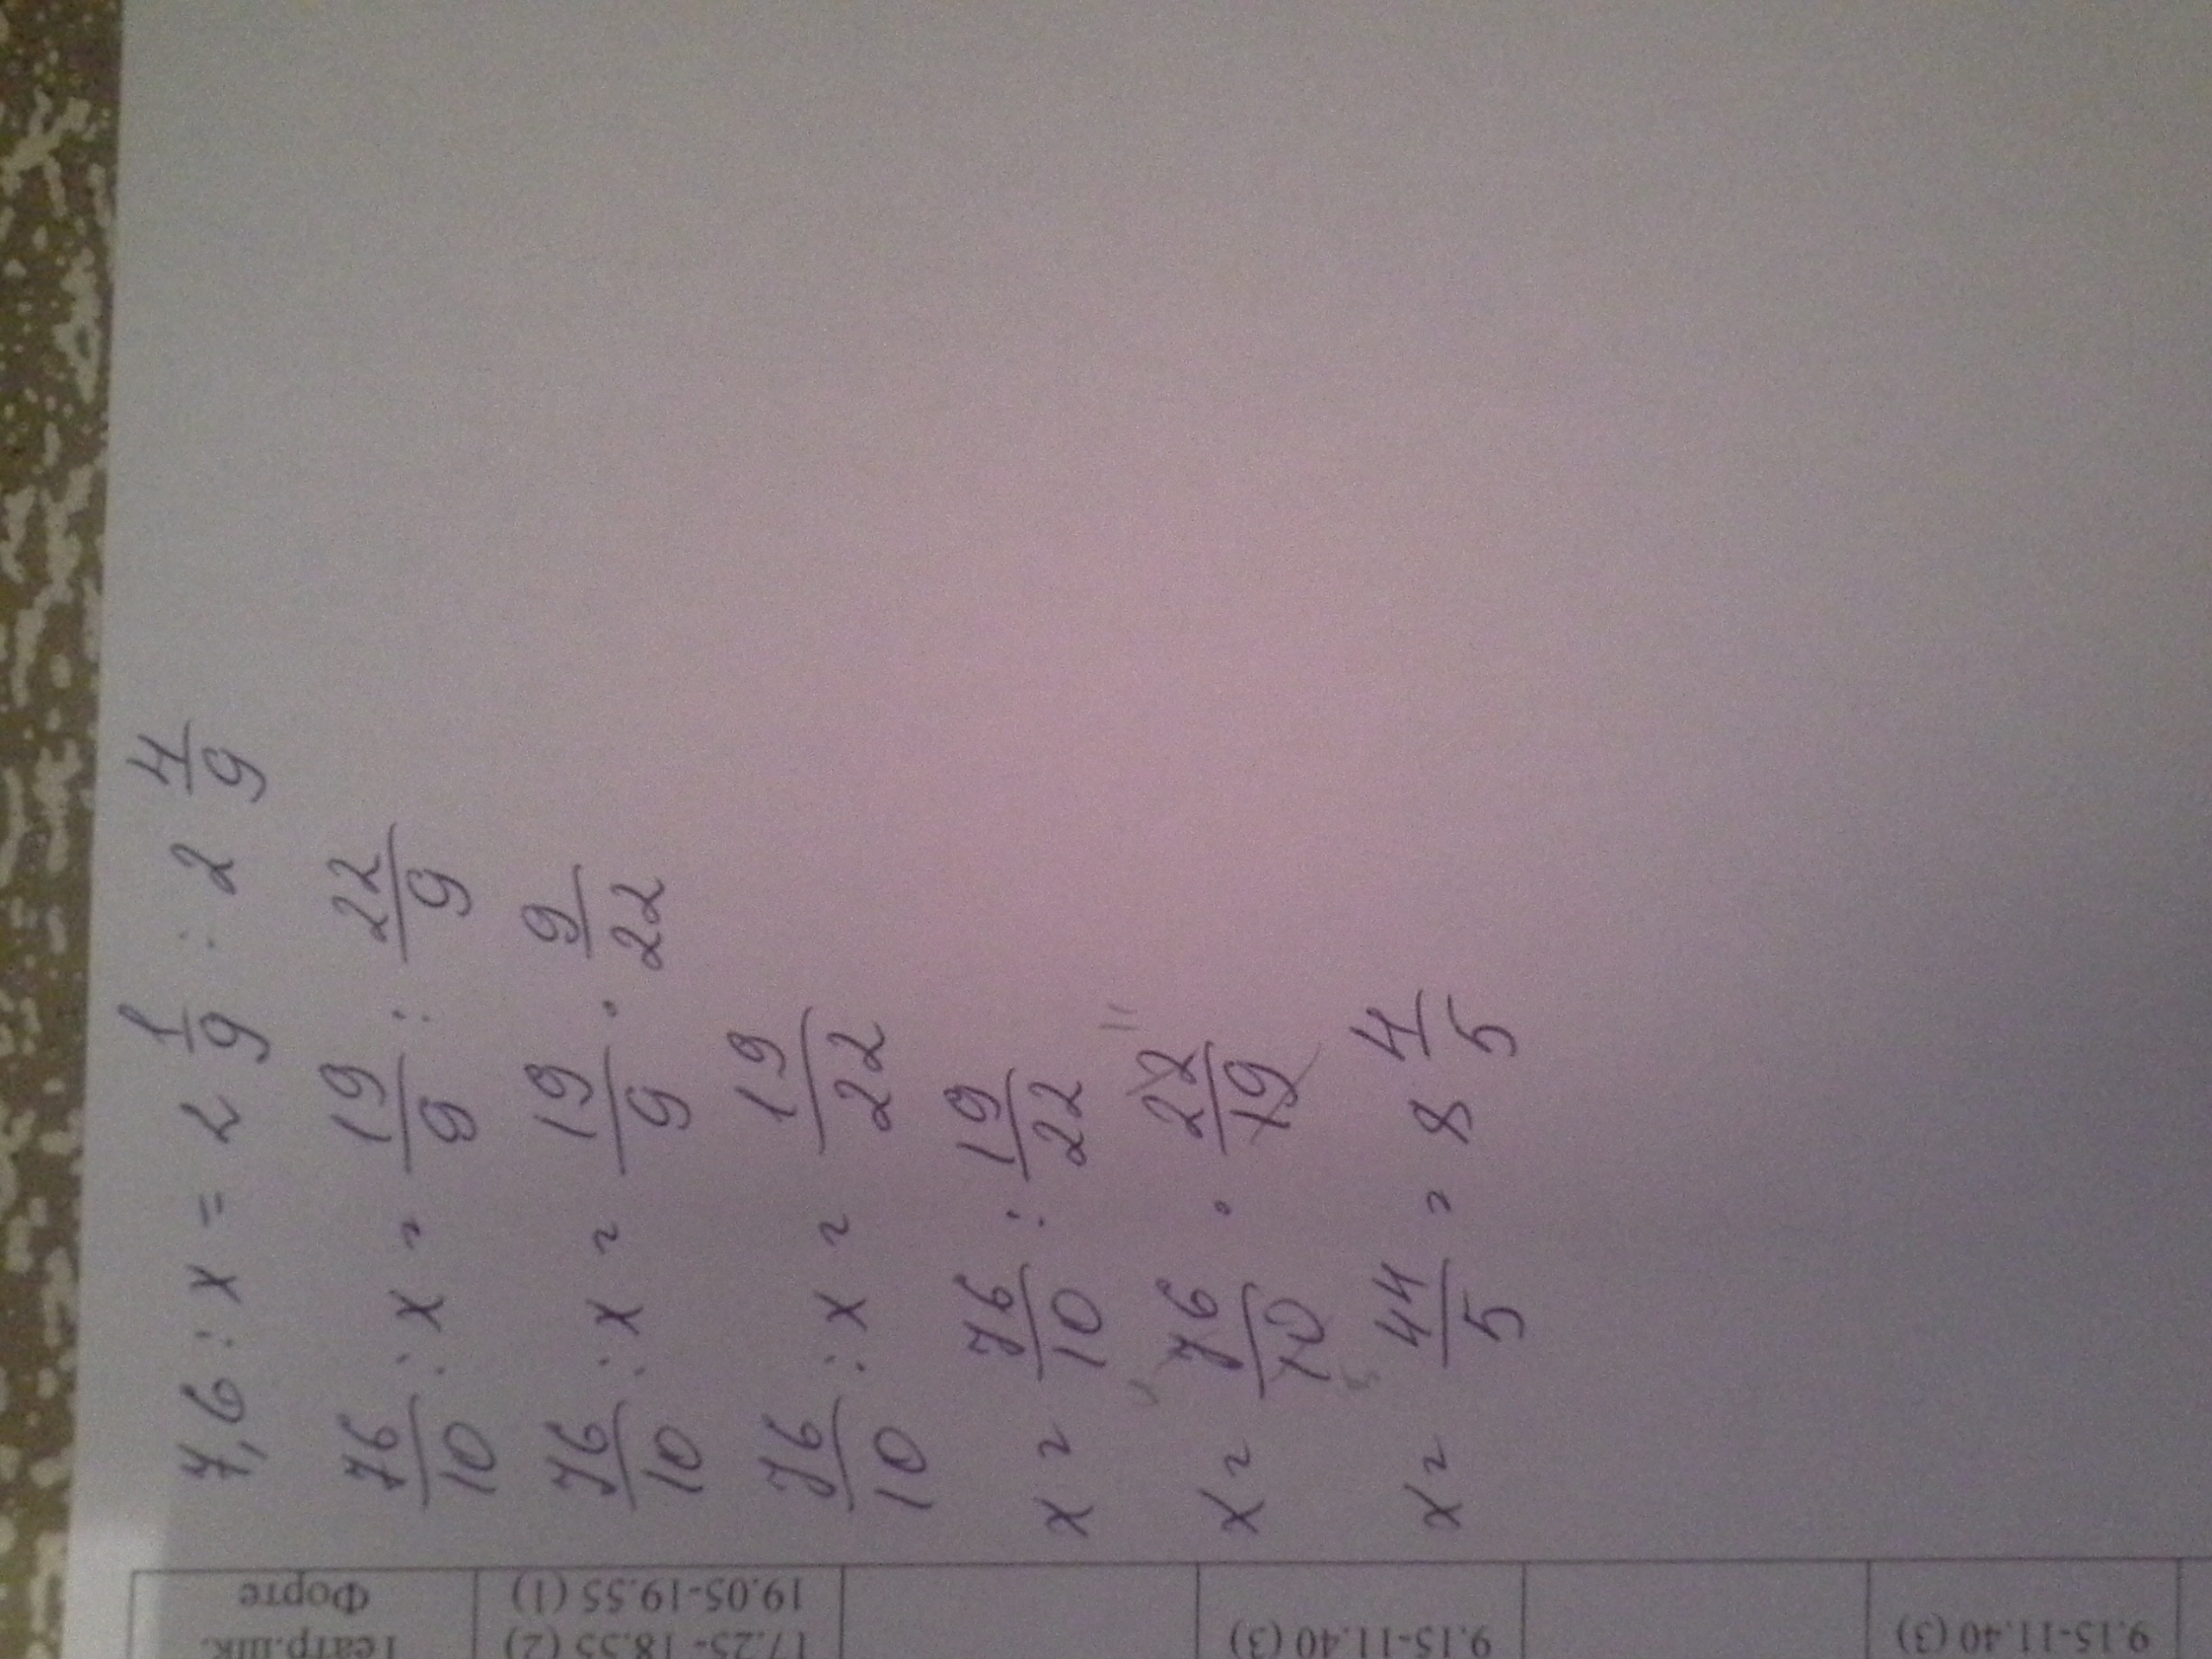 7,6 : x = 2 1/9 : 2 4/9
76/10 : x = 19/9 : 22/9
76/10 : x = 19/9 · 9/22
76/10 : x = 19/22
x = 76/10 : 19/22
x = 76/10 · 22/19
x = 44/5 = 8 4/5
Театр.шк.
Форте
17.25-18.55 (2)
19.05-19.55 (1)
9.15-11.40 (3)
9.15-11.40 (3)